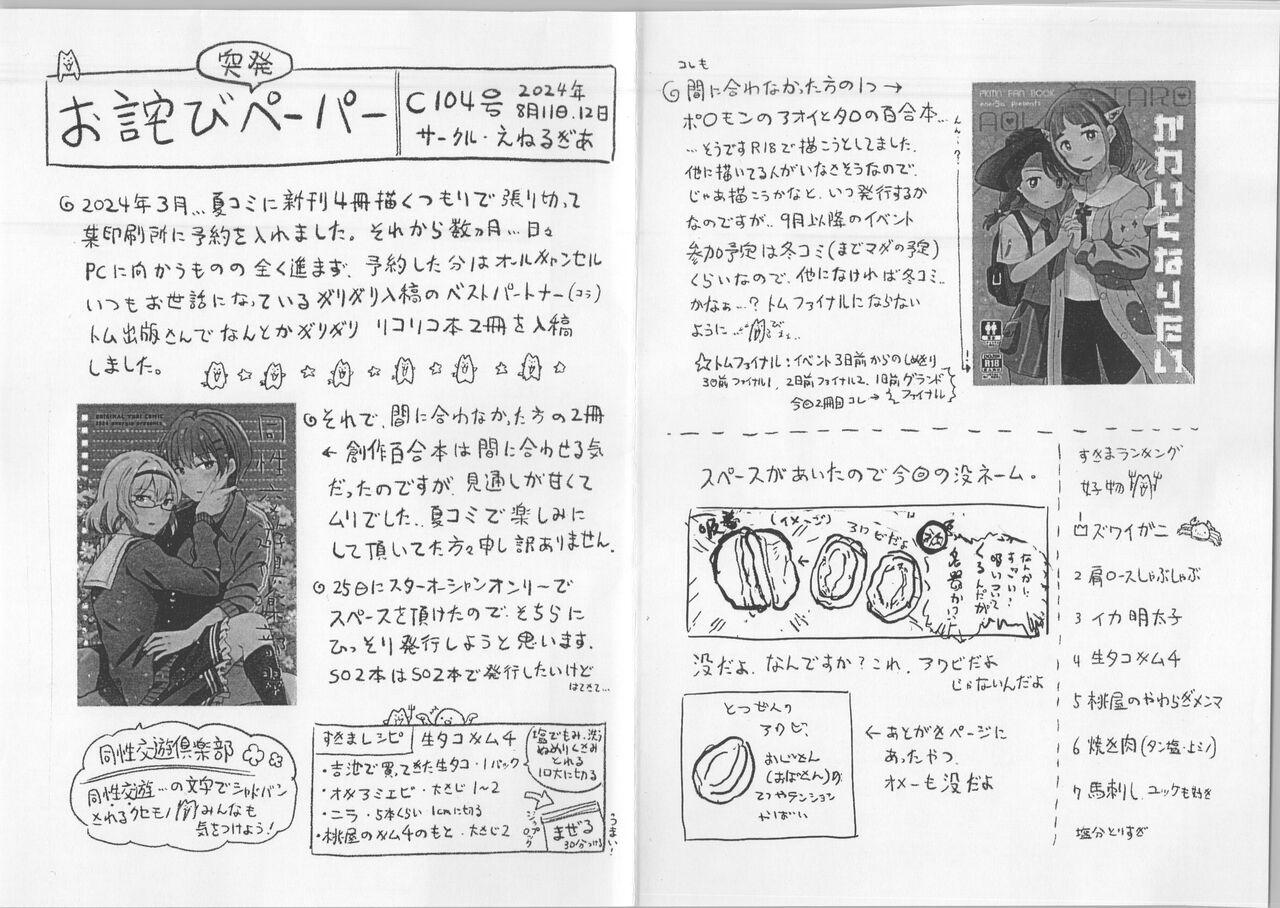 突発
お詫びペーパー
C104号 2024年
8月11日.12日
サークル・えねるぎあ
2024年3月… 夏コミに新刊4冊描くつもりで張り切って
某印刷所に予約を入れました。それから数ヵ月… 日々
PCに向かうものの全く進まず、予約した分はオールキャンセル
いつもお世話になっているギリギリ入稿のベストパートナー(コラ)
トム出版さんでなんとかギリギリ リコリコ本2冊を入稿
しました。
ORIGINAL YURI COMIC
2024 energia presents
同性交遊倶楽部
それで、間に合わなかった方の2冊
← 創作百合本は間に合わせる気
だったのですが、見通しが甘くて
ムリでした… 夏コミで楽しみに
して頂いてた方々申し訳ありません.
25日にスターオーシャンオンリーで
スペースを頂けたので、そちらに
ひっそり発行しようと思います.
SO2本はSO2本で発行したいけど
はてさて…
同性交遊倶楽部
同性交遊…の文字でシャドバン
されるクセモノ みんなも
気をつけよう!
すきまレシピ 生タコキムチ
・吉池で買ってきた生タコ・1パック
・オキアミエビ・大さじ1~2
・ニラ・5本くらい 1cmに切る
・桃屋のキムチのもと・大さじ2
塩でもみ、洗う
ぬめりくさみ
とれる
1口大に切る
ジップロック
まぜる
30分つける
うまい!
コレも
間に合わなかった方の1つ →
ポ○モンのアオイとタロの百合本…
…そうですR18で描こうとしてました.
他に描いてる人がいなさそうなので、
じゃあ描こうかなと、いつ発行するか
なのですが、9月以降のイベント
参加予定は冬コミ(までマダの予定)
くらいなので、他になければ冬コミ..
かなぁ…? トムファイナルにならない
ように…
☆トムファイナル:イベント3日前からのしめきり
3日前ファイナル1, 2日前ファイナル2, 1日前グランド
ファイナル
今回2冊目コレ→
ん…?
PKMN FAN BOOK
energia presents
TARO
AOI
かわいくなりたい
R18
スペースがあいたので今回の没ネーム。
吸巻
(イメージ)
アワビだよ
なんかに
すっごい!
吸いついて
くるんだが
名器かっ!
没だよ、なんですか?これ、アワビだよ
じゃないんだよ
とつぜんの
アワビ、
おじさん
(おばさん)の
てつやテンション
やばい
← あとがきページに
あったやつ.
オメーも没だよ
すきまランキング
好物
1 ズワイガニ
2 肩ロースしゃぶしゃぶ
3 イカ明太子
4 生タコキムチ
5 桃屋のやわらぎメンマ
6 焼き肉(タン塩・上ミノ)
7 馬刺し、ユッケも好き
塩分とりすぎ